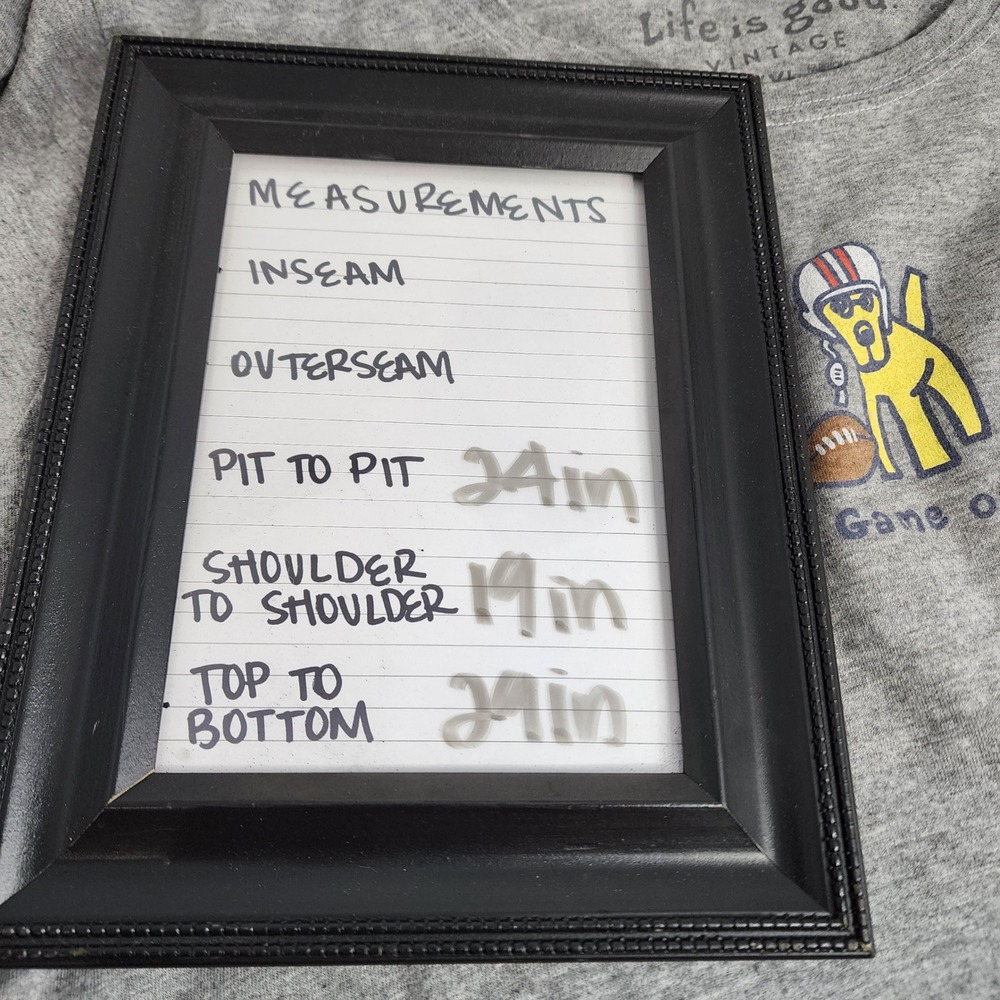 Life is good.
VINTAGE
MEASUREMENTS
INSEAM
OUTERSEAM
PIT TO PIT 24in
SHOULDER
TO SHOULDER 19in
TOP TO
BOTTOM 29in
Game o